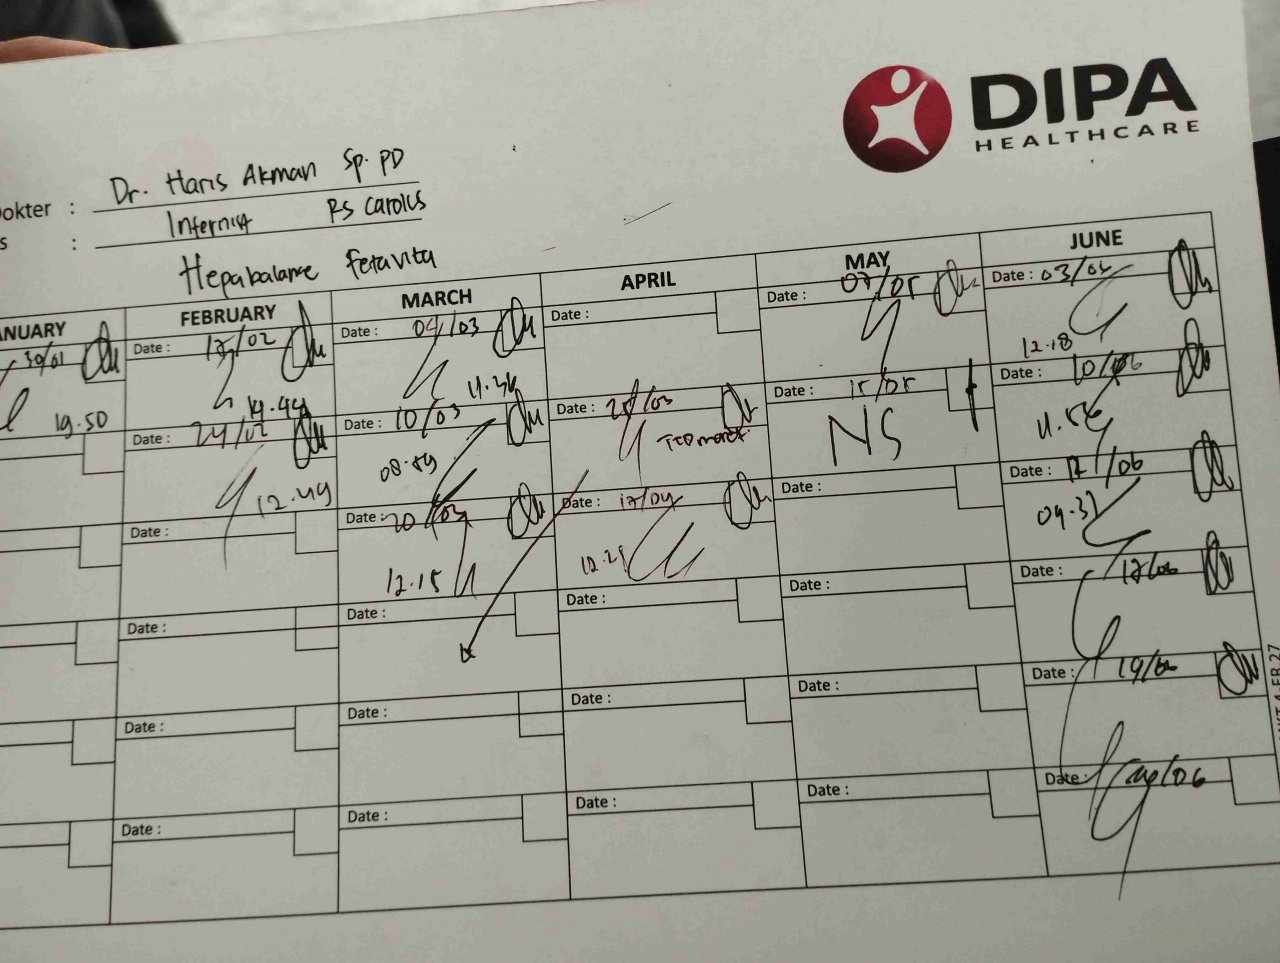 DIPA
HEALTHCARE
Dokter : Dr. Haris Akman Sp. PD
s : Internist RS Carolus
Hepabalance Feravita
ANUARY FEBRUARY MARCH APRIL MAY JUNE
30/01
19.50
Date : 17/02
14.44
Date : 24/02
12.49
Date :
Date :
Date :
Date :
Date : 04/03
11.34
Date : 10/03
08.59
Date : 20/03
12.15
Date :
Date :
Date :
Date :
Date : 25/03
Date : 17/04
12.21
Date :
Date :
Date :
Date : 07/05
Date : 15/05
NS
Date :
Date :
Date :
Date :
Date : 03/06
12.18
Date : 10/06
11.56
Date : 17/06
09.32
Date : 17/06
Date : 19/06
Date : /06